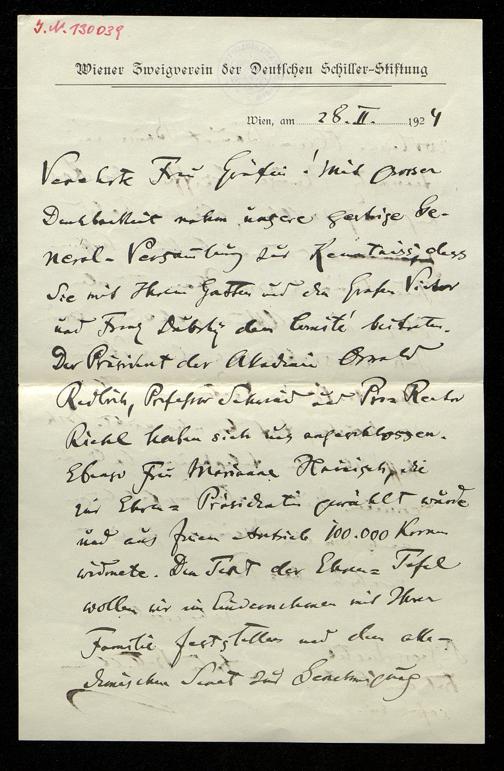 J.N. 130039
Wiener Zweigverein der Deutschen Schiller-Stiftung
Wien, am 28. II. 1924
Verehrte Frau Gräfin! Mit grosser
Dankbarkeit nahm unsere gestrige Ge-
neral-Versamlung zur Kenntniss, dass
Sie mit Ihrem Gatten und den Grafen Victor
und Franz Dubsky dem Comité beitreten.
Der Präsident der Akademie Oswald
Redlich, Professor und Pro-Rector
Riehl haben sich uns angeschlossen.
Ebenso Frau Marianne Hainisch, die
zur Ehren=Präsidentin gewählt wurde
und aus freiem Antrieb 100.000 Kronen
widmete. Den Text der Ehren=Tafel
wollen wir im Einvernehmen mit Ihrer
Familie feststellen und dem aka-
demischen Senat zur Genehmigung